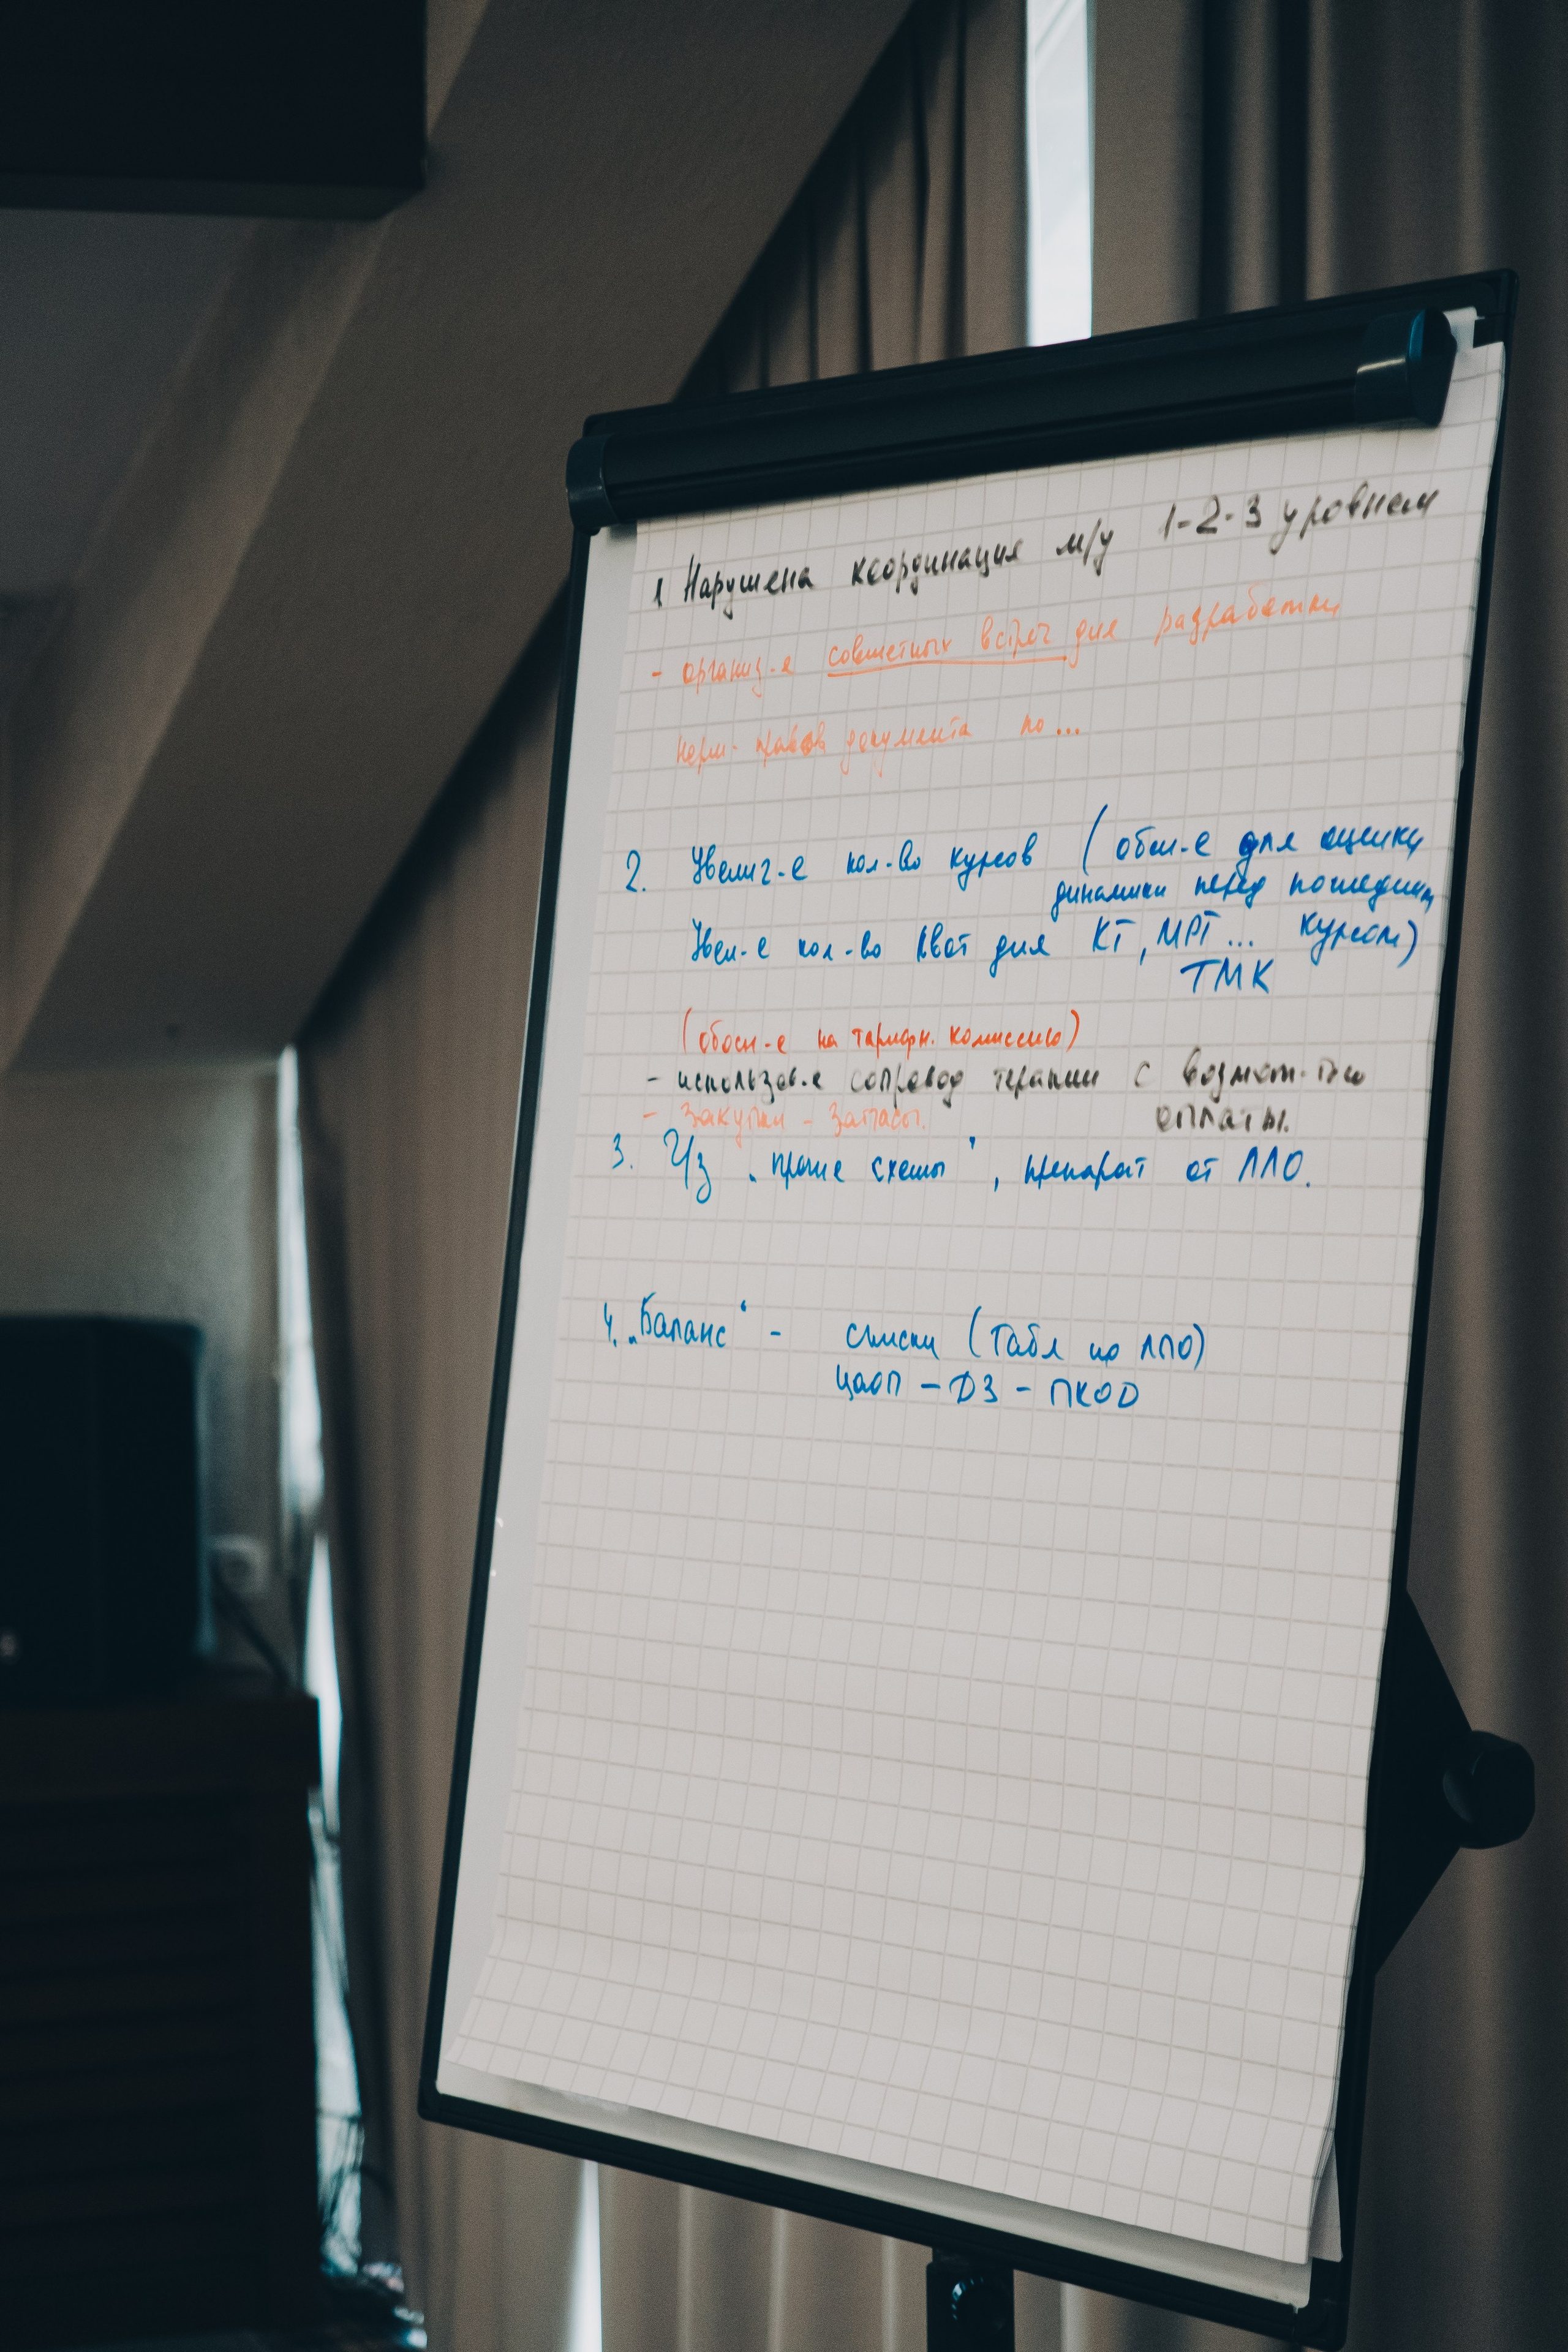 1 Нарушена координация м/у 1-2-3 уровнем
- организ-е совместных встреч для разработки
норм- правов документа по...
2. Увелич-е кол-во курсов (обсл-е для оценки
динамики перед последним
Увел-е кол-во квот для КТ, МРТ... курсом)
ТМК
(обосн-е на тарифн. комиссию)
- использов-е сопровод терапии с возмож-тью
- закупки - запасы. оплаты.
3. Ч/з "прочие схемы", препарат от ЛЛО.
4. "Баланс" - списки (Табл по ЛЛО)
ЦАОП - ДЗ - ПКОД